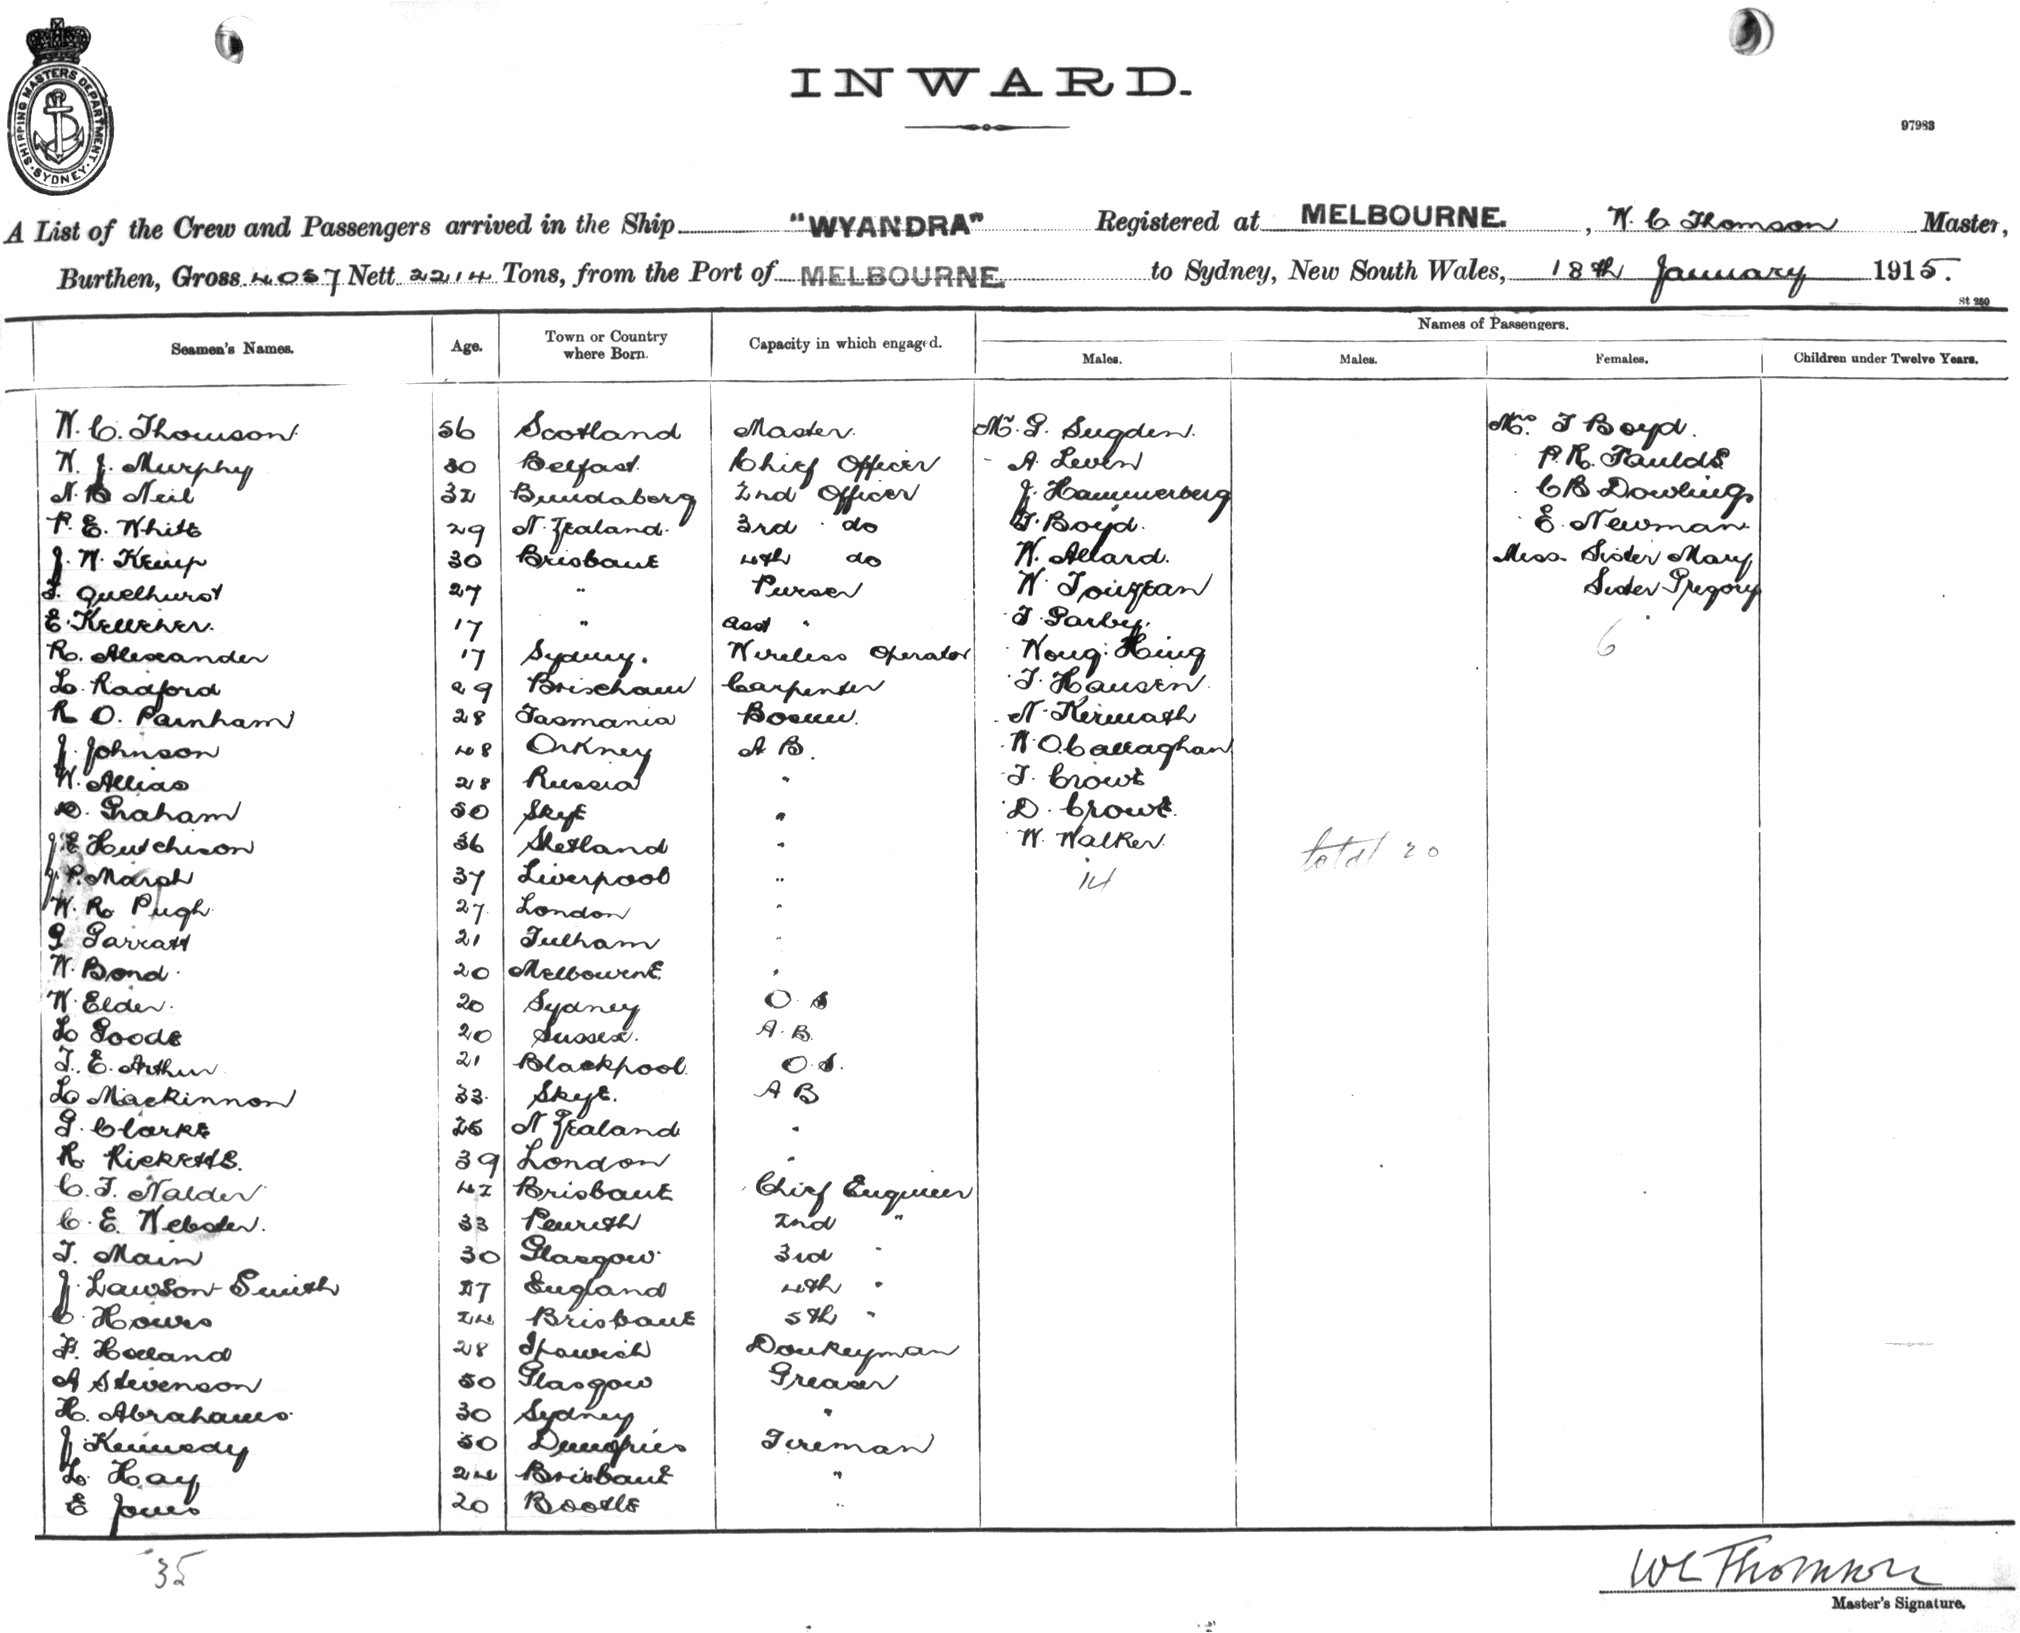 SHIPPING MASTERS DEPARTMENT
SYDNEY
INWARD.
97983
A List of the Crew and Passengers arrived in the Ship "WYANDRA" Registered at MELBOURNE. , W. C Thomson Master,
Burthen, Gross 4057 Nett 2214 Tons, from the Port of MELBOURNE. to Sydney, New South Wales, 18th January 1915.
St 250
Seamen's Names. Age. Town or Country where Born. Capacity in which engaged. Names of Passengers.
Males. Males. Females. Children under Twelve Years.
W. C. Thomson 56 Scotland Master Mr. G. Sugden. Mrs. F Boyd.
W. J. Murphy 30 Belfast. Chief Officer A. Leven P. R. Faulds
N. B Neil 32 Bundaberg 2nd Officer J. Hammerberg C B Dowling
P. E. White 29 N. Zealand. 3rd do F. Boyd. E. Newman
J. W. Kemp 30 Brisbane 4th do W. Allard. Miss. Sister Mary
F. Quelhurst 27 " Purser W Sister Gregory
E. Kelleher. 17 " asst " T. Garby. 6
R. Alexander 17 Sydney. Wireless Operator Wong: Hing
L. Radford 29 Brixham Carpenter T. Hansen
R O. Parnham 28 Tasmania Bosun. N. Kermath
J. Johnson 48 Orkney A B. W O.Callaghan
W. Allias 28 Russia " T. Crowe
D. Graham 50 Skye " D. Crowe.
J E Hutchison 36 Shetland " W. Walker
J P. Marsh 37 Liverpool " 14 total 20
W. R. Pugh. 27 London "
G Garratt 21 Fulham "
W. Bond. 20 Melbourne "
W. Elder. 20 Sydney O. S
L Goode 20 Sussex. A. B.
T. E. Arthur 21 Blackpool. O. S.
L Mackinnon 33 Skye. A B
G. Clarke 25 N Zealand "
R. Ricketts. 39 London "
C. F. Nalder 42 Brisbane Chief Engineer
C. E. Webster. 33 Penrith 2nd "
T. Main 30 Glasgow 3rd "
J. Lawson-Smith 27 England 4th "
C. Hows 24 Brisbane 5th "
F. Holland 28 Ipswich Donkeyman
A Stevenson 50 Glasgow Greaser
H. Abrahams. 30 Sydney "
J Kennedy 50 Dumfries Fireman
L. Hay 24 Brisbane "
E Jones 20 Bootle "
35
W C Thomson
Master's Signature.